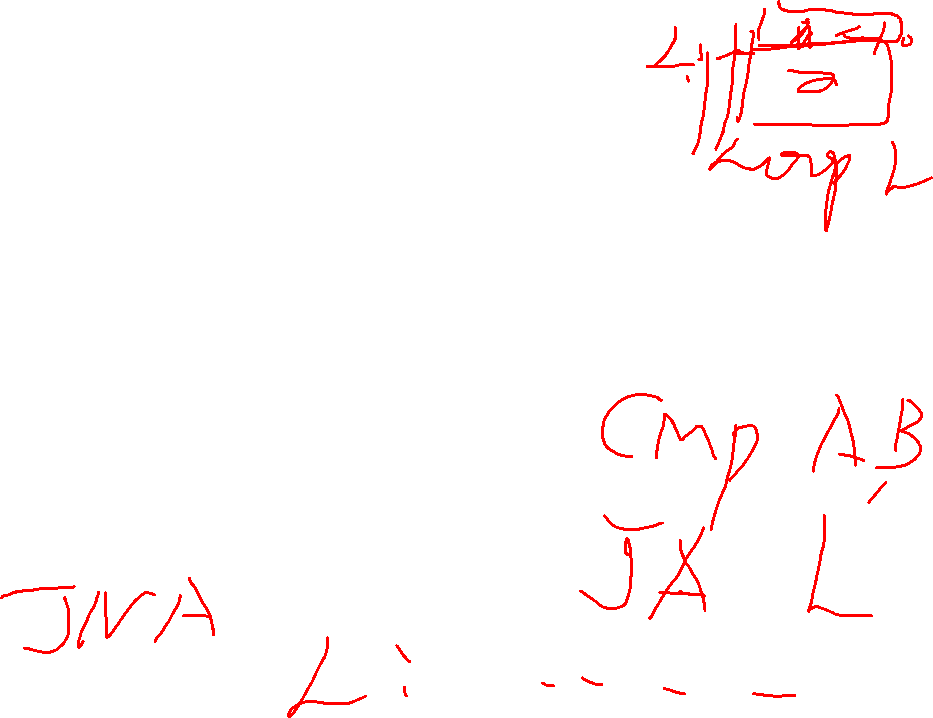 L:
Loop L
Cmp A,B
JA L
JNA
L: -- -- - -